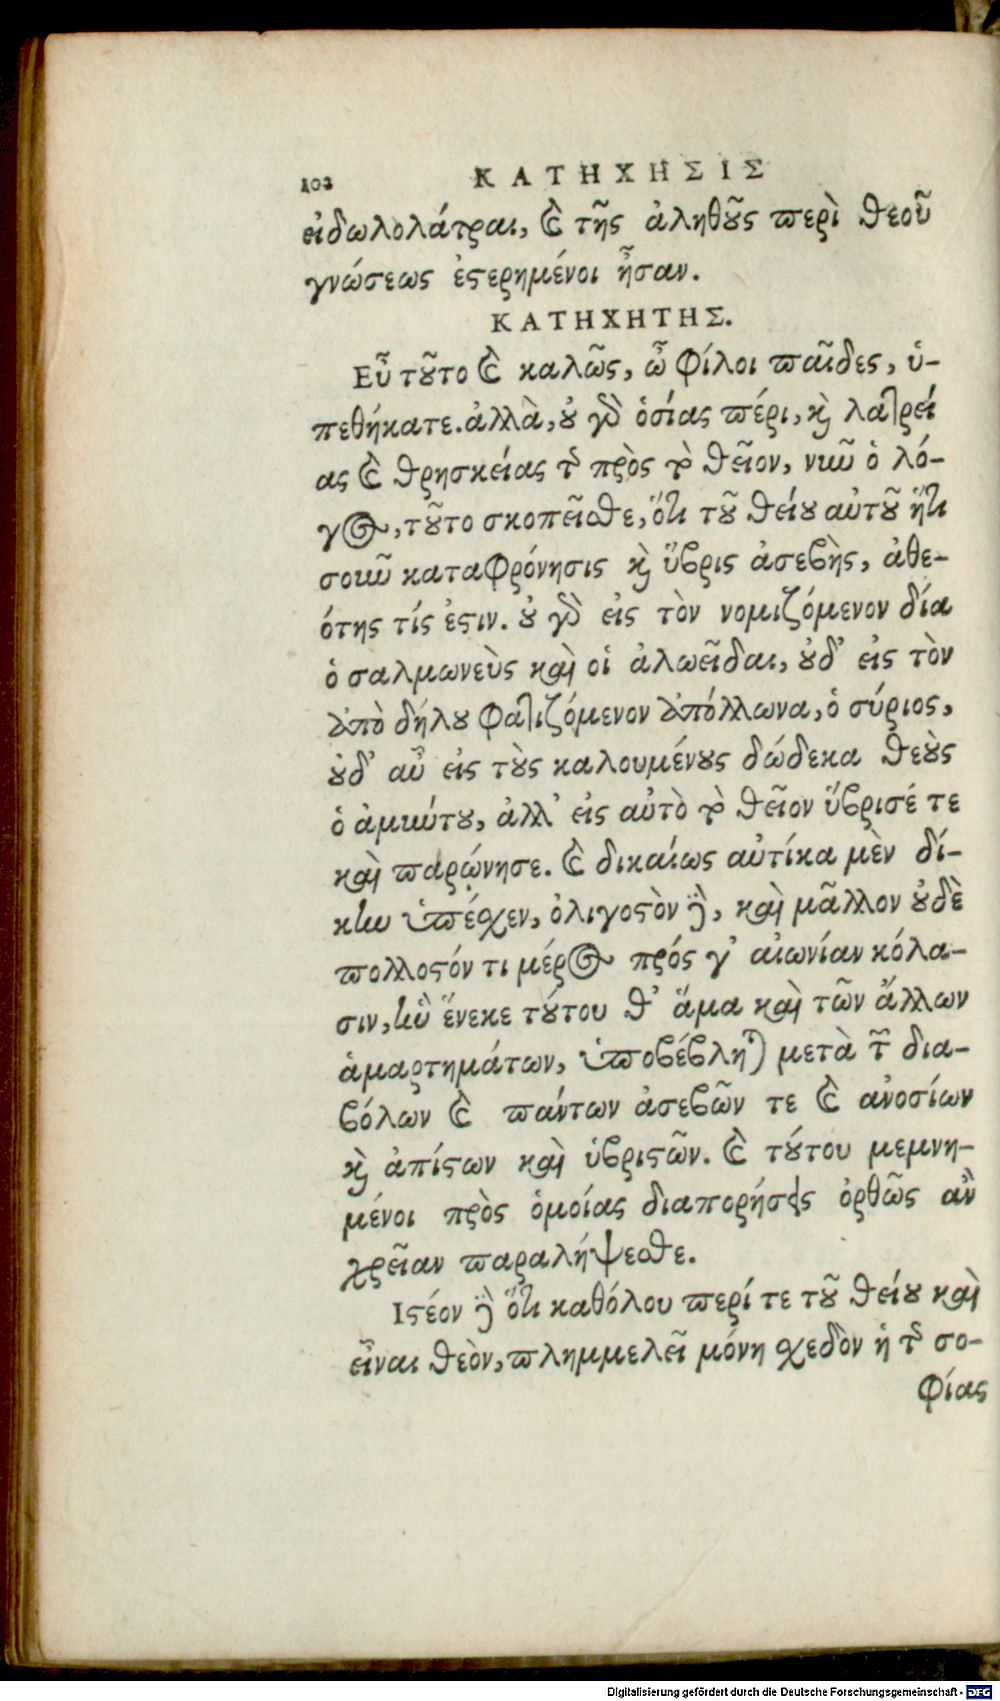 102 ΚΑΤΗΧΗΣΙΣ
εἰδωλολάτραι, καὶ τῆς ἀληθοῦς περὶ θεοῦ
γνώσεως ἐστερημένοι ἦσαν.
ΚΑΤΗΧΗΤΗΣ.
Εὖ τοῦτο καὶ καλῶς, ὦ φίλοι παῖδες, ὑ-
πεθήκατε. ἀλλὰ, οὐ γὰρ ὁσίας πέρι, καὶ λατρεί
ας καὶ θρησκείας τῆς πρὸς τὸ θεῖον, νῦν ὁ λό-
γος, τοῦτο σκοπεῖσθε, ὅτι τοῦ θείου αὐτοῦ ἥτι
σοῦν καταφρόνησις καὶ ὕβρις ἀσεβὴς, ἀθε-
ότης τίς ἐστιν. οὐ γὰρ εἰς τὸν νομιζόμενον δία
ὁ σαλμωνεὺς καὶ οἱ ἀλωεῖδαι, οὐδ' εἰς τὸν
ἀπὸ δήλου φατιζόμενον ἀπόλλωνα, ὁ σύριος,
οὐδ' αὖ εἰς τοὺς καλουμένους δώδεκα θεοὺς
ὁ ἀμύντου, ἀλλ' εἰς αὐτὸ τὸ θεῖον ὕβρισέ τε
καὶ παρῴνησε. καὶ δικαίως αὐτίκα μὲν δί-
κην ὑπέσχεν, ὀλιγοστὸν δὲ, καὶ μᾶλλον οὐδὲ
πολλοστόν τι μέρος πρός γ' αἰωνίαν κόλα-
σιν, ἣν ἕνεκε τούτου θ' ἅμα καὶ τῶν ἄλλων
ἁμαρτημάτων, ὑποβέβληται μετὰ τῶν δια-
βόλων καὶ πάντων ἀσεβῶν τε καὶ ἀνοσίων
καὶ ἀπίστων καὶ ὑβριστῶν. καὶ τούτου μεμνη-
μένοι πρὸς ὁμοίας διαπορήσεις ὀρθῶς ἂν
χρεῖαν παραλήψεσθε.
Ιστέον δὲ ὅτι καθόλου περί τε τοῦ θείου καὶ
εἶναι θεὸν, πλημμελεῖ μόνη σχεδὸν ἡ τῆς σο-
φίας
Digitalisierung gefördert durch die Deutsche Forschungsgemeinschaft - DFG